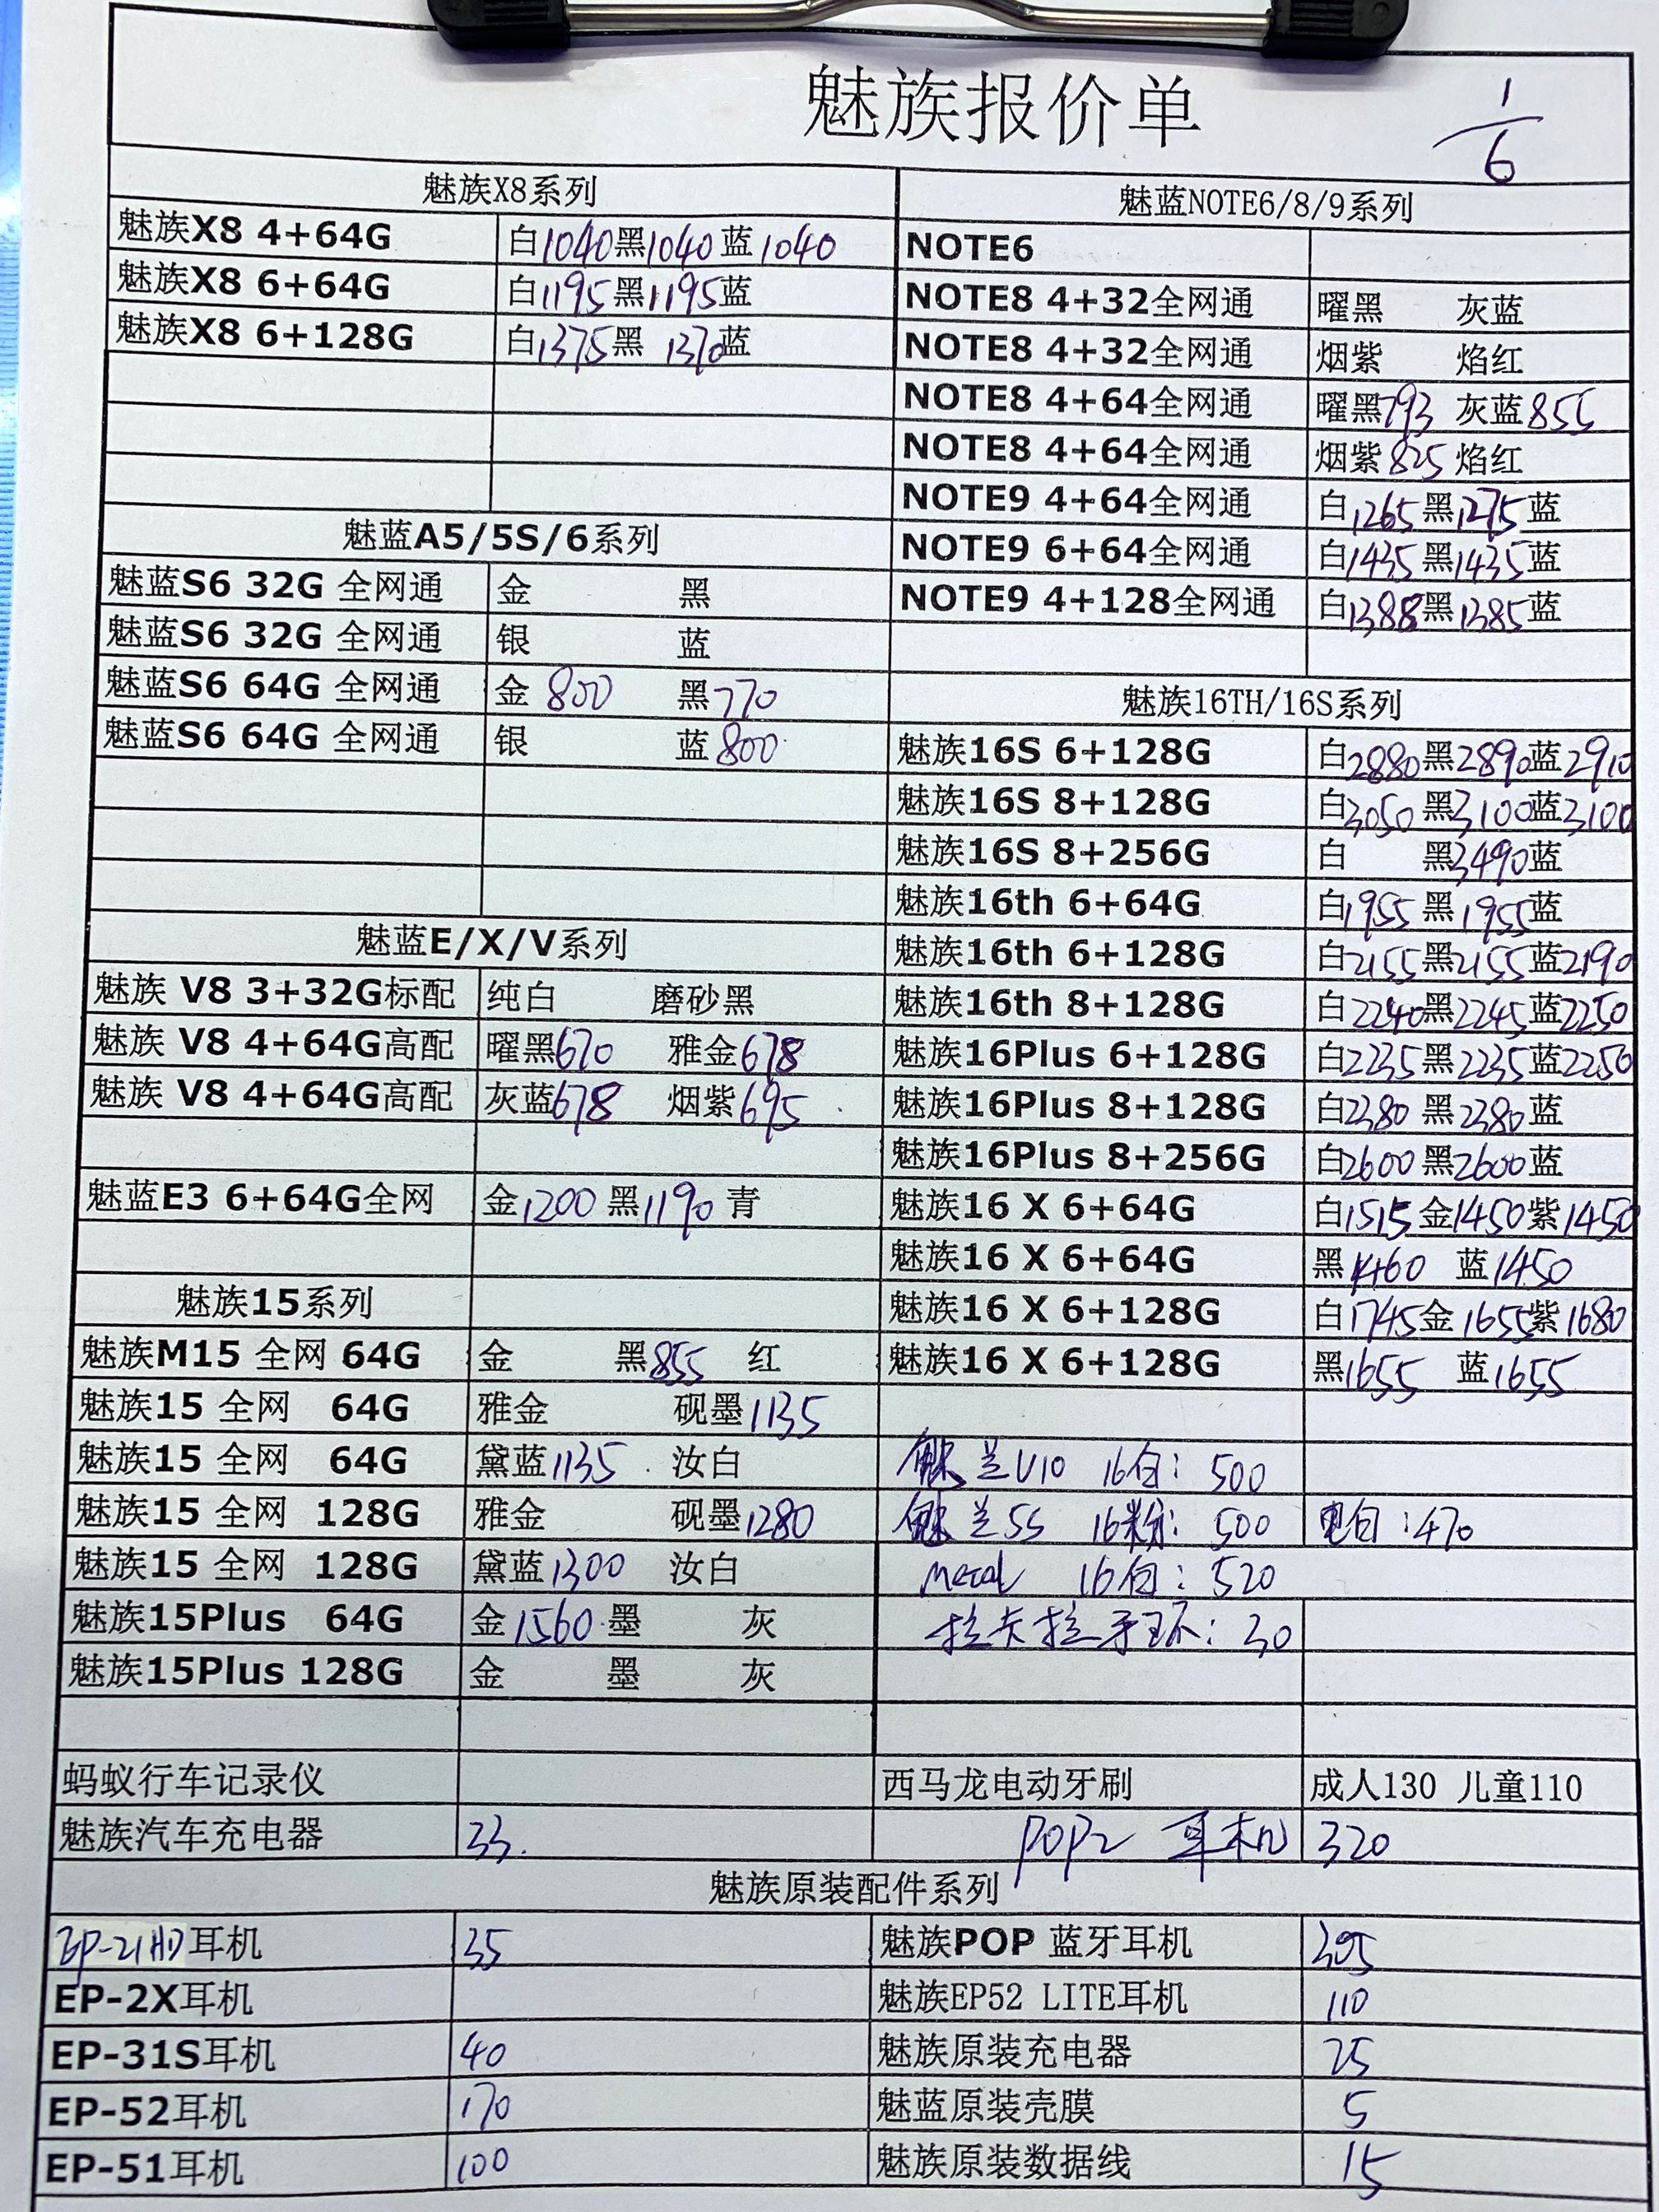 魅族报价单
1/6
魅族X8系列
魅族X8 4+64G 白1040黑1040蓝1040
魅族X8 6+64G 白1195黑1195蓝
魅族X8 6+128G 白1375黑 1370蓝
魅蓝A5/5S/6系列
魅蓝S6 32G 全网通 金 黑
魅蓝S6 32G 全网通 银 蓝
魅蓝S6 64G 全网通 金 800 黑770
魅蓝S6 64G 全网通 银 蓝800
魅蓝E/X/V系列
魅族 V8 3+32G标配 纯白 磨砂黑
魅族 V8 4+64G高配 曜黑670 雅金678
魅族 V8 4+64G高配 灰蓝678 烟紫695
魅蓝E3 6+64G全网 金1200黑1190青
魅族15系列
魅族M15 全网 64G 金 黑855 红
魅族15 全网 64G 雅金 砚墨1135
魅族15 全网 64G 黛蓝1135 汝白
魅族15 全网 128G 雅金 砚墨1280
魅族15 全网 128G 黛蓝1300 汝白
魅族15Plus 64G 金1560墨 灰
魅族15Plus 128G 金 墨 灰
魅蓝NOTE6/8/9系列
NOTE6
NOTE8 4+32全网通 曜黑 灰蓝
NOTE8 4+32全网通 烟紫 焰红
NOTE8 4+64全网通 曜黑793 灰蓝855
NOTE8 4+64全网通 烟紫825 焰红
NOTE9 4+64全网通 白1265黑1275蓝
NOTE9 6+64全网通 白1435黑1435蓝
NOTE9 4+128全网通 白1388黑1385蓝
魅族16TH/16S系列
魅族16S 6+128G 白2880黑2890蓝2910
魅族16S 8+128G 白3050黑3100蓝3100
魅族16S 8+256G 白 黑3490蓝
魅族16th 6+64G 白1955黑1955蓝
魅族16th 6+128G 白2155黑2155蓝2190
魅族16th 8+128G 白2240黑2245蓝2250
魅族16Plus 6+128G 白2235黑2235蓝2250
魅族16Plus 8+128G 白2380黑2380蓝
魅族16Plus 8+256G 白2600黑2600蓝
魅族16 X 6+64G 白1515金1450紫1450
魅族16 X 6+64G 黑1460 蓝1450
魅族16 X 6+128G 白1745金1655紫1680
魅族16 X 6+128G 黑1655 蓝1655
魅兰U10 16白: 500
魅兰5S 16粉: 500 电白:470
metal 16白: 520
拉卡拉手环: 30
蚂蚁行车记录仪 西马龙电动牙刷 成人130 儿童110
魅族汽车充电器 33. POP2 耳机 320
魅族原装配件系列
EP-21HD耳机 35 魅族POP 蓝牙耳机 305
EP-2X耳机 魅族EP52 LITE耳机 110
EP-31S耳机 40 魅族原装充电器 25
EP-52耳机 170 魅蓝原装壳膜 5
EP-51耳机 100 魅族原装数据线 15